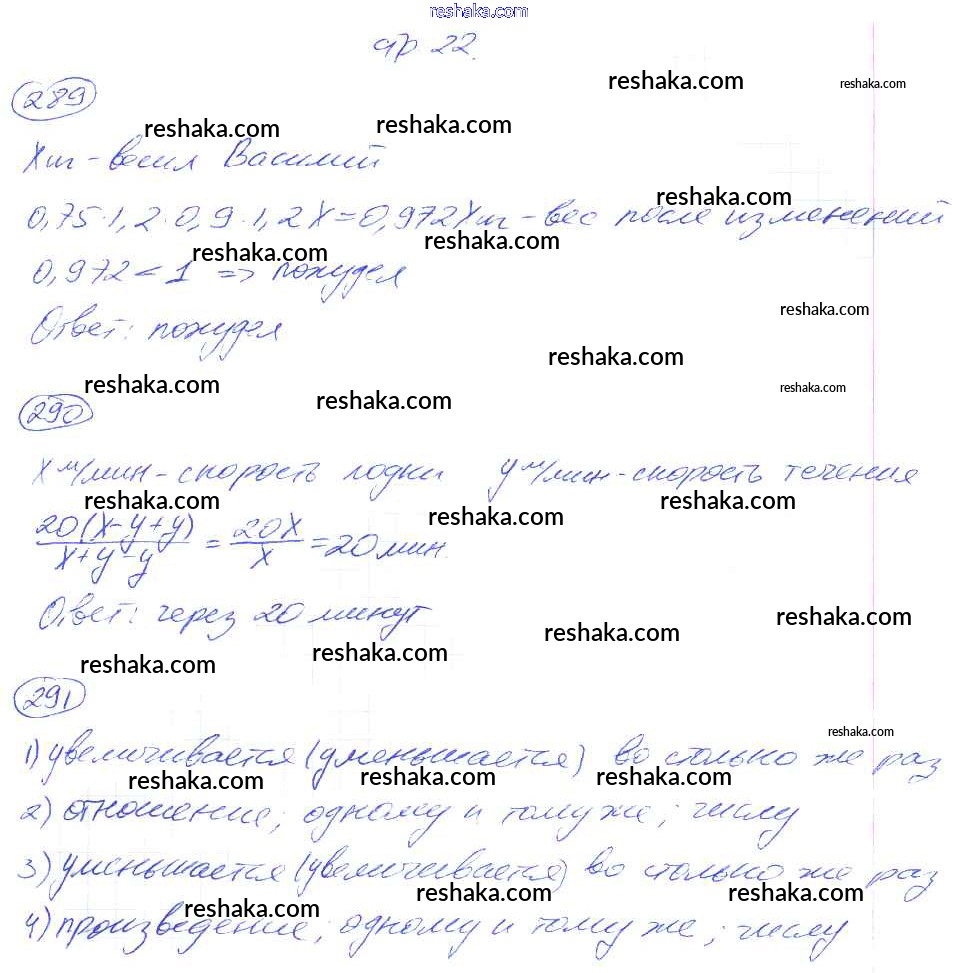 reshaka.com
стр 22.
reshaka.com reshaka.com
289
reshaka.com reshaka.com
Х кг - весил Василий
reshaka.com
0,75·1,2·0,9·1,2Х=0,972Х кг - вес после изменений
reshaka.com reshaka.com
0,972<1 => похудел
reshaka.com
Ответ: похудел
reshaka.com
reshaka.com reshaka.com reshaka.com
290
х м/мин - скорость лодки у м/мин - скорость течения
reshaka.com reshaka.com reshaka.com
20(х-у+у)/х+у-у = 20х/х = 20 мин.
Ответ: через 20 минут
reshaka.com reshaka.com
reshaka.com reshaka.com
291
reshaka.com
1) увеличивается (уменьшается) во столько же раз
reshaka.com reshaka.com reshaka.com
2) отношение; одному и тому же; числу
3) уменьшается (увеличивается) во столько же раз
reshaka.com reshaka.com reshaka.com
4) произведение; одному и тому же; числу